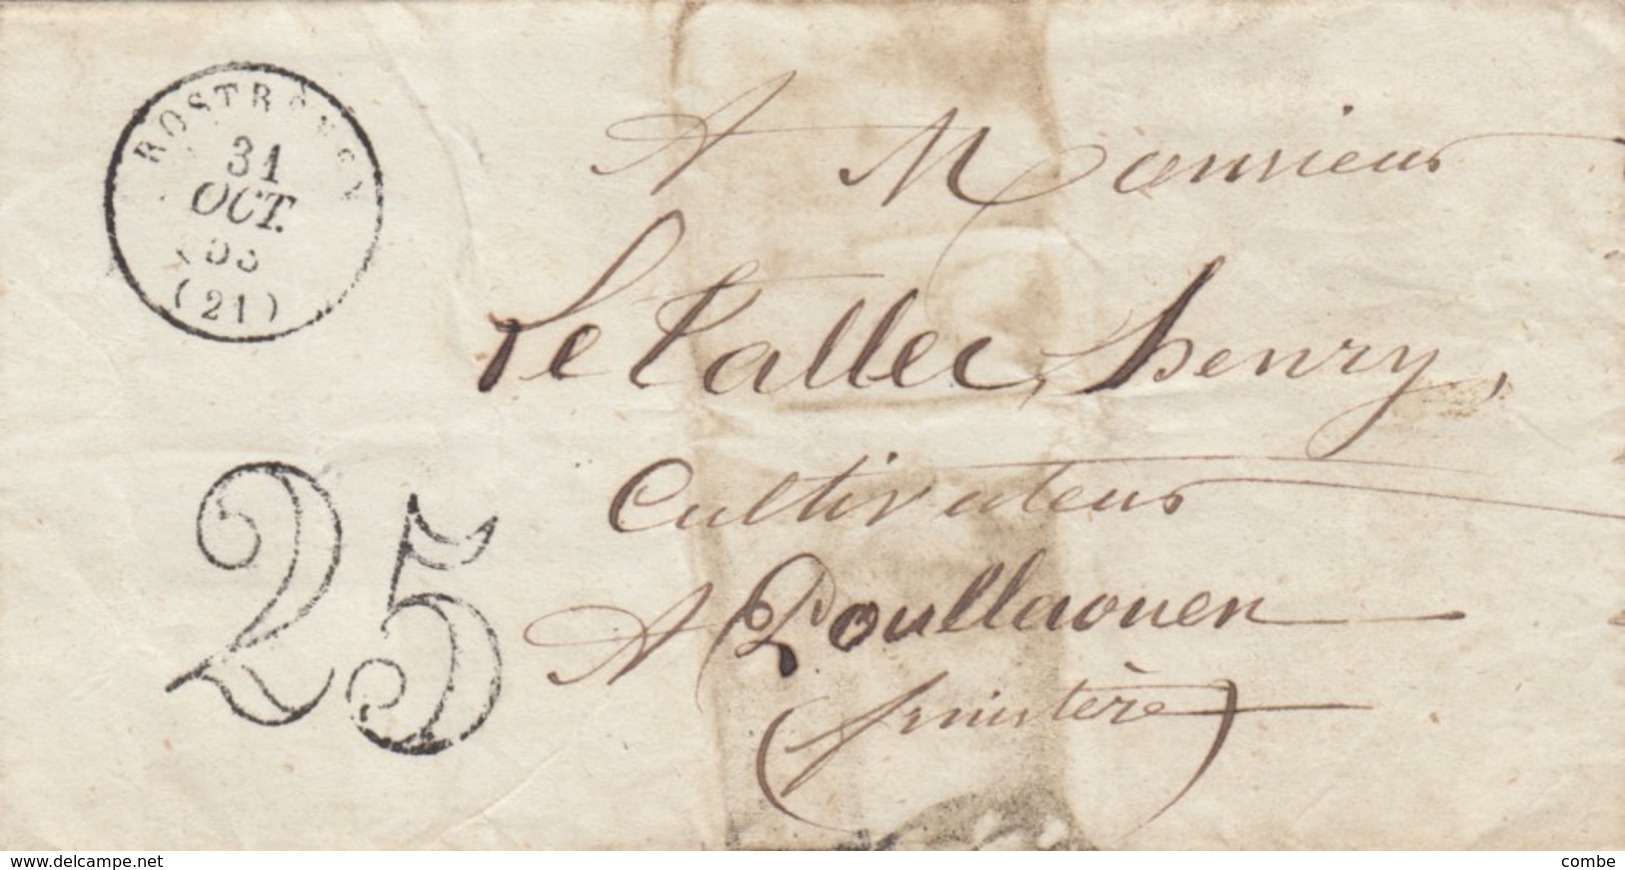 ROSTRENEN
31
OCT.
(21)
25
A Monsieur
Le Tallec, henry,
Cultivateur
A Poullaouen
(finistère)
www.delcampe.net
combe